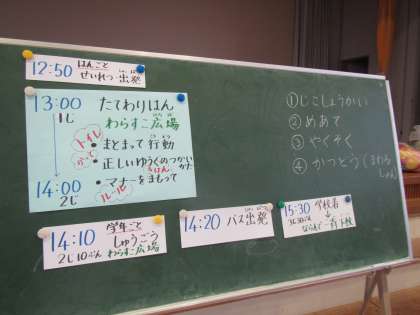 12:50 はんごと
せいれつ・出発
13:00 たてわりはん
1じ わらすこ広場
トイレ
・まとまって行動
・正しいゆうぐのつかいかた
・マナーをまもって
ルール
14:00
2じ
14:10 学年ごと
しゅうごう
2じ10ぷん わらすこ広場
14:20 バス出発
15:30 学校着
3じ30ぷん
①じこしょうかい
②めあて
③やくそく
④かつどう(